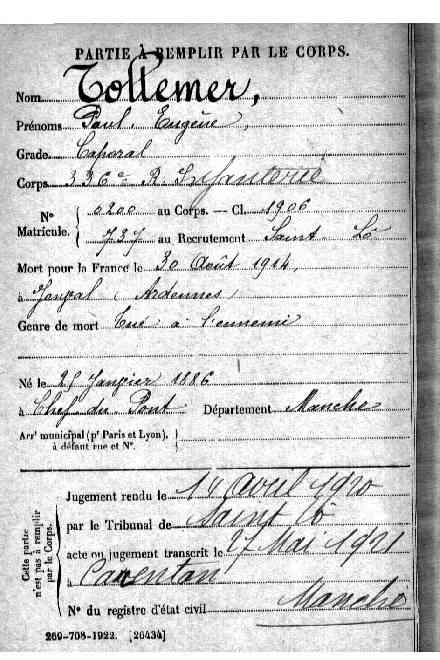 PARTIE À REMPLIR PAR LE CORPS.
Nom Tollemer,
Prénoms Paul Eugène,
Grade Caporal
Corps 336e R. Infanterie
No Matricule. { 0200 au Corps. — Cl. 1906
737 au Recrutement Saint Lô
Mort pour la France le 30 Août 1914,
à Jonval (Ardennes)
Genre de mort Tué à l'ennemi
Né le 25 Janvier 1886
à Chef du Pont Département Manche
Arrt municipal (pr Paris et Lyon),
à défaut rue et No.
Cette partie
n'est pas à remplir
par le Corps.
Jugement rendu le avril 1920
par le Tribunal de Saint Lô
acte ou jugement transcrit le 27 Mai 1921
à Carentan
Manche
No du registre d'état civil
269-708-1922. [26434]